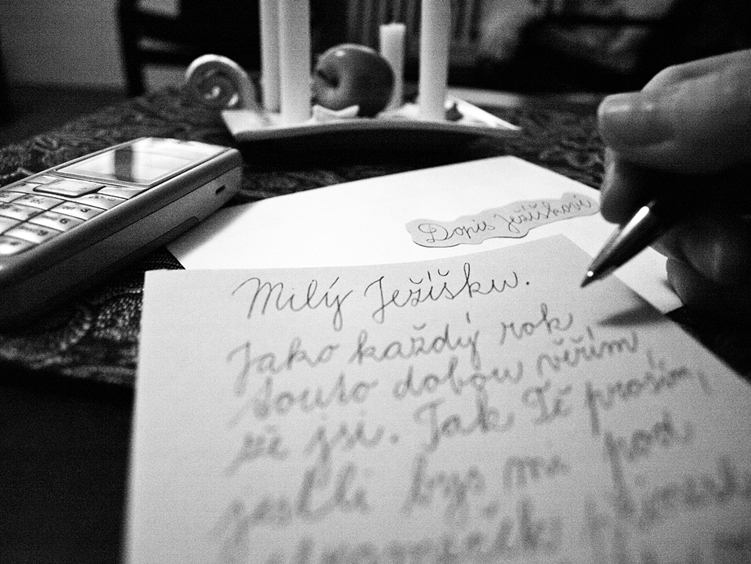 Dopis Ježíškovi
Milý Ježíšku.
Jako každý rok
touto dobou věřím,
že jsi. Tak Tě prosím,
jestli bys mi pod